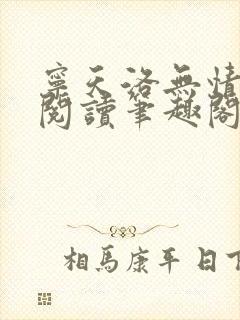 寧天洛無情
閱讀筆趣閣
相馬康平 日下